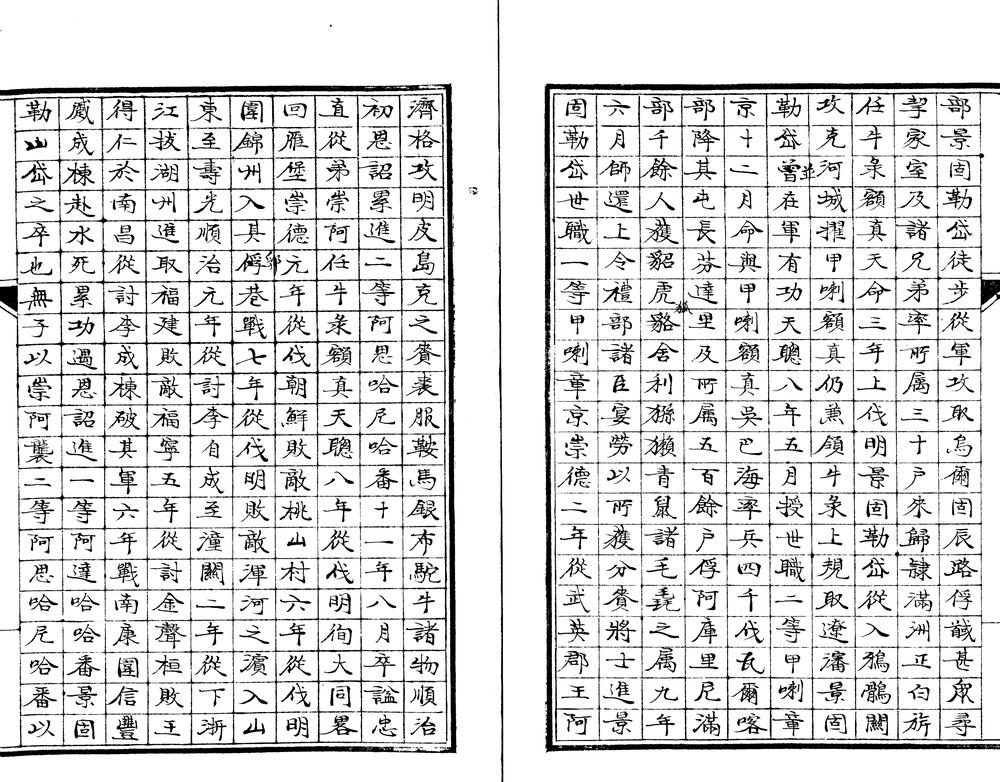 部景固勒岱徒步從軍攻取烏爾固辰路俘馘甚眾尋
挈家室及諸兄弟率所属三十戶來歸隸滿洲正白旂
任牛彔額真天命三年上伐明景固勒岱從入鴉鶻關
攻克河城擢甲喇額真仍兼領牛彔上規取遼瀋景固
勒岱並曾在軍有功天聰八年五月授世職二等甲喇章
京十二月命與甲喇額真吳巴海率兵四千伐瓦爾喀
部降其屯長芬達里及所属五百餘戶俘阿庫里尼滿
部千餘人獲貂虎狐貉舍利猻獺青鼠諸毛毳之属九年
六月師還上令禮部諸臣宴勞以所獲分賚將士進景
固勒岱世職一等甲喇章京崇德二年從武英郡王阿
濟格攻明皮島克之賚裘服鞍馬銀布駝牛諸物順治
初恩詔累進二等阿思哈尼哈番十一年八月卒謚忠
直從弟崇阿任牛彔額真天聰八年從伐明徇大同畧
回雁堡崇德元年從伐朝鮮敗敵桃山村六年從伐明
圍錦州入其郛俘巷戰七年從伐明敗敵渾河之濱入山
東至壽光順治元年從討李自成至潼關二年從下浙
江拔湖州進取福建敗敵福寧五年從討金聲桓敗王
得仁於南昌從討李成棟破其軍六年戰南康圍信豐
咸成棟赴水死累功遇恩詔進一等阿達哈哈番景固
勒岱之卒也無子以崇阿襲二等阿思哈尼哈番以